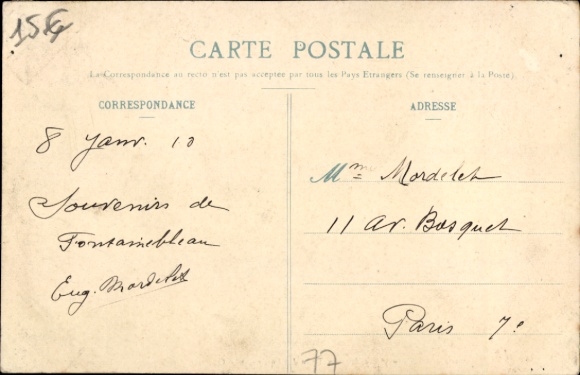 15€
CARTE POSTALE
La Correspondance au recto n'est pas acceptée par tous les Pays Etrangers (Se renseigner à la Poste).
CORRESPONDANCE
8 Janv. 10
Souvenirs de
Fontainebleau
Eug. Mordelet
ADRESSE
Mme Mordelet
11 Av. Bosquet
Paris 7e
77